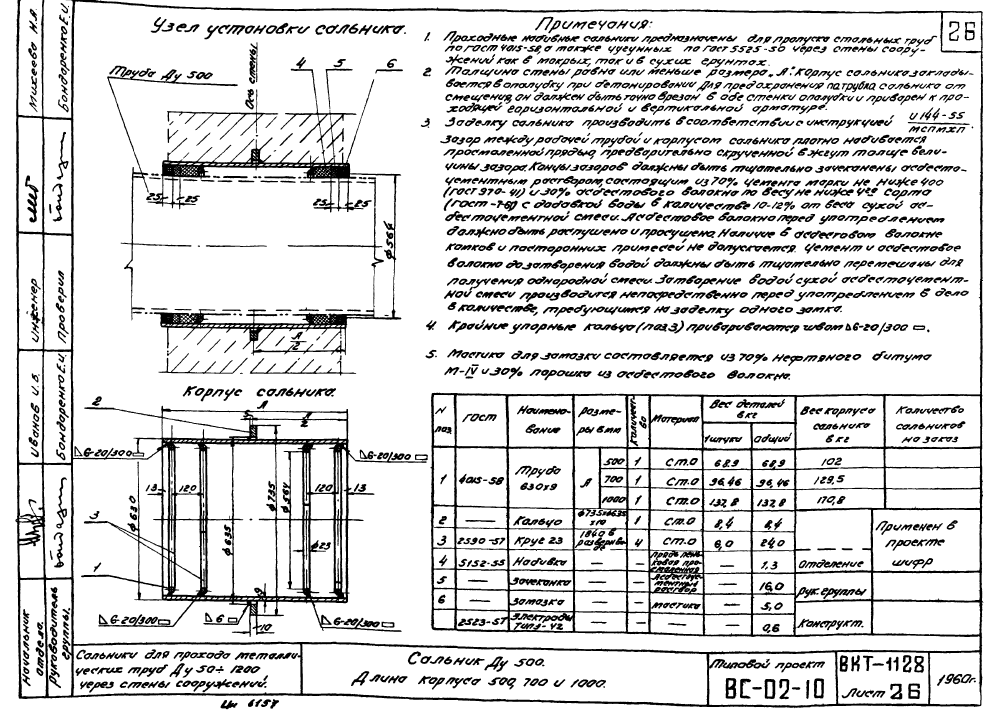 Узел установки сальника.
Труба Ду 500
Ось стены
4 5 6
25 25
25 25
ф564
Л
2
Корпус сальника.
Л
2
Л
2
5
6-20/300
6-20/300
13 120
120 13
ф630
ф635
ф735
ф564
ф23
3
1
6-20/300
6
10
6-20/300
Примечания:
26
1. Проходные набивные сальники предназначены для пропуска стальных труб
по ГОСТ 4015-58, а также чугунных по ГОСТ 5525-50 через стены соору-
жений как в мокрых, так и в сухих грунтах.
2 Толщина стены равна или меньше размера „Л". Корпус сальника заклады-
вается в опалубку при бетонировании. Для предохранения патрубка сальника от
смещения, он должен быть точно врезан в обе стенки опалубки и приварен к про-
ходящей горизонтальной и вертикальной арматуре.
3. Заделку сальника производить в соответствии с инструкцией И 144-55
МСПМХП
Зазор между рабочей трубой и корпусом сальника плотно набивается
просмоленной прядью, предварительно скрученной в жгут толще вели-
чины зазора. Концы зазоров должны быть тщательно зачеканены асбесто-
цементным раствором, состоящим из 70% цемента марки не ниже 400
(ГОСТ 970-41) и 30% асбестового волокна по весу не ниже 4го сорта
(ГОСТ -7-60) с добавкой воды в количестве 10-12% от веса сухой ас-
бестоцементной смеси. Асбестовое волокно перед употреблением
должно быть распушено и просушено. Наличие в асбестовом волокне
комков и посторонних примесей не допускается. Цемент и асбестовое
волокно до затворения водой должны быть тщательно перемешаны для
получения однородной смеси. Затворение водой сухой асбестоцемент-
ной смеси производится непосредственно перед употреблением в дело
в количестве, требующимся на заделку одного замка.
4. Крайние упорные кольца (поз.3) привариваются швом 6-20/300.
5. Мастика для замазки составляется из 70% нефтяного битума
М-IV и 30% порошка из асбестового волокна.
N поз. ГОСТ Наименование Размеры в мм Количество Материал Вес деталей в кг Вес корпуса сальника в кг Количество сальников на заказ
1 штуки общий
1 4015-58 Труба 630х9 Л 500 1 Ст.0 68,9 68,9 102
700 1 Ст.0 96,46 96,46 129,5
1000 1 Ст.0 137,8 137,8 170,8
2 — Кольцо ф735хф635 х10 1 Ст.0 8,4 8,4
3 2590-57 Круг 23 1840 в развертке 4 Ст.0 6,0 24,0
4 5152-55 Набивка — — Прядь пеньковая просмоленная — 1,3
5 — Зачеканка — — Асбестоцементный раствор — 16,0
6 — Замазка — — мастика — 5,0
2523-57 Электроды типа-42 — — — — 0,6
Применен в
проекте
Отделение шифр
Рук. группы
Конструкт.
Сальники для прохода металли-
ческих труб Ду 50÷1200
через стены сооружений.
Сальник Ду 500.
Длина корпуса 500, 700 и 1000.
Типовой проект
ВС-02-10
ВКТ-1128
Лист 26
1960г.
Начальник отдела.
Руководитель группы.
Иванов И.Б.
Бондаренко Е.И.
инженер
Проверил
Михеева Н.Я.
Бондаренко Е.И.
Ци 6157